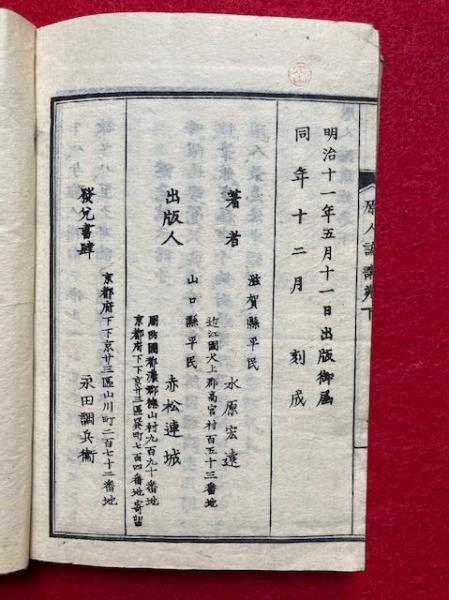 明治十一年五月十一日出版御届
同年十二月刻成
著者
滋賀縣平民
水原宏遠
近江国犬上郡高宮村百五十三番地
出版人
山口縣平民
赤松連城
周防国都濃郡徳山村九百九十番地
京都府下下京廿三區巽町七百四番地寄留
發兌書肆
京都府下下京廿三區山川町二百七十二番地
永田調兵衛
原人論講義下